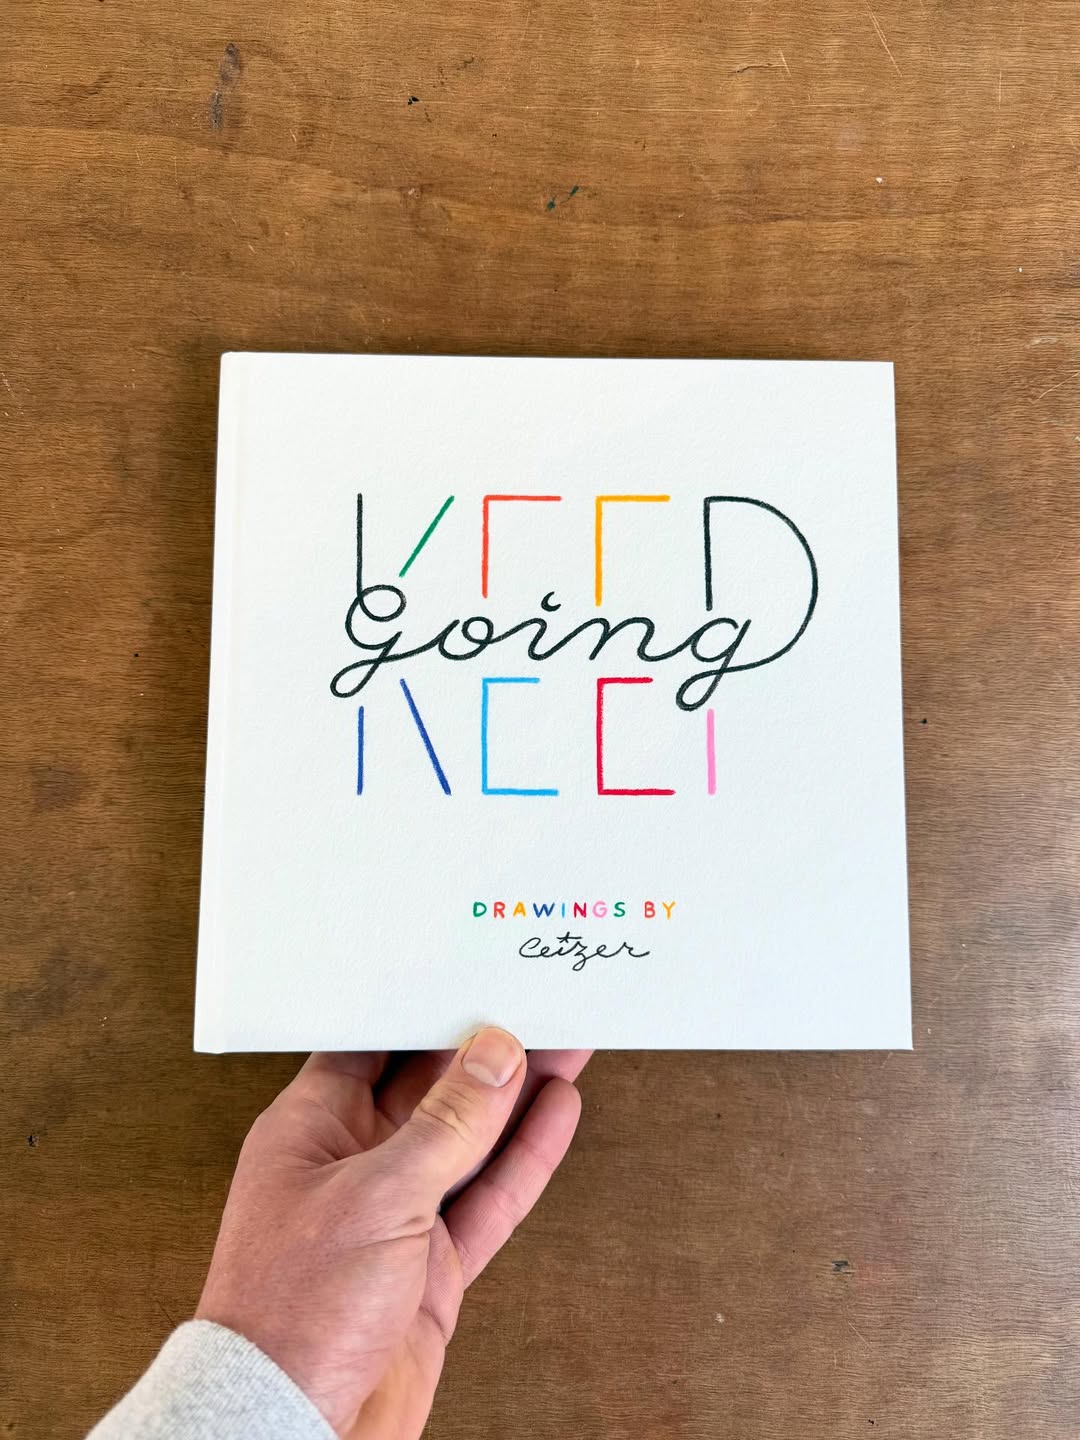 KEEP
Going
DRAWINGS BY
Ceizer